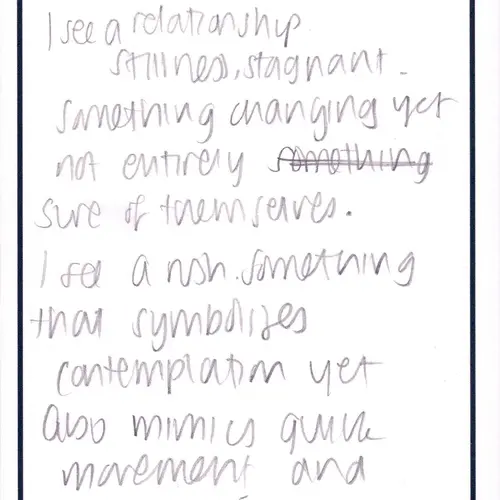 I see a relationship.
stillness, stagnant.
something changing yet
not entirely something
sure of themselves.
I see a fish. something
that symbolizes
contemplation yet
also mimics quick
movement and